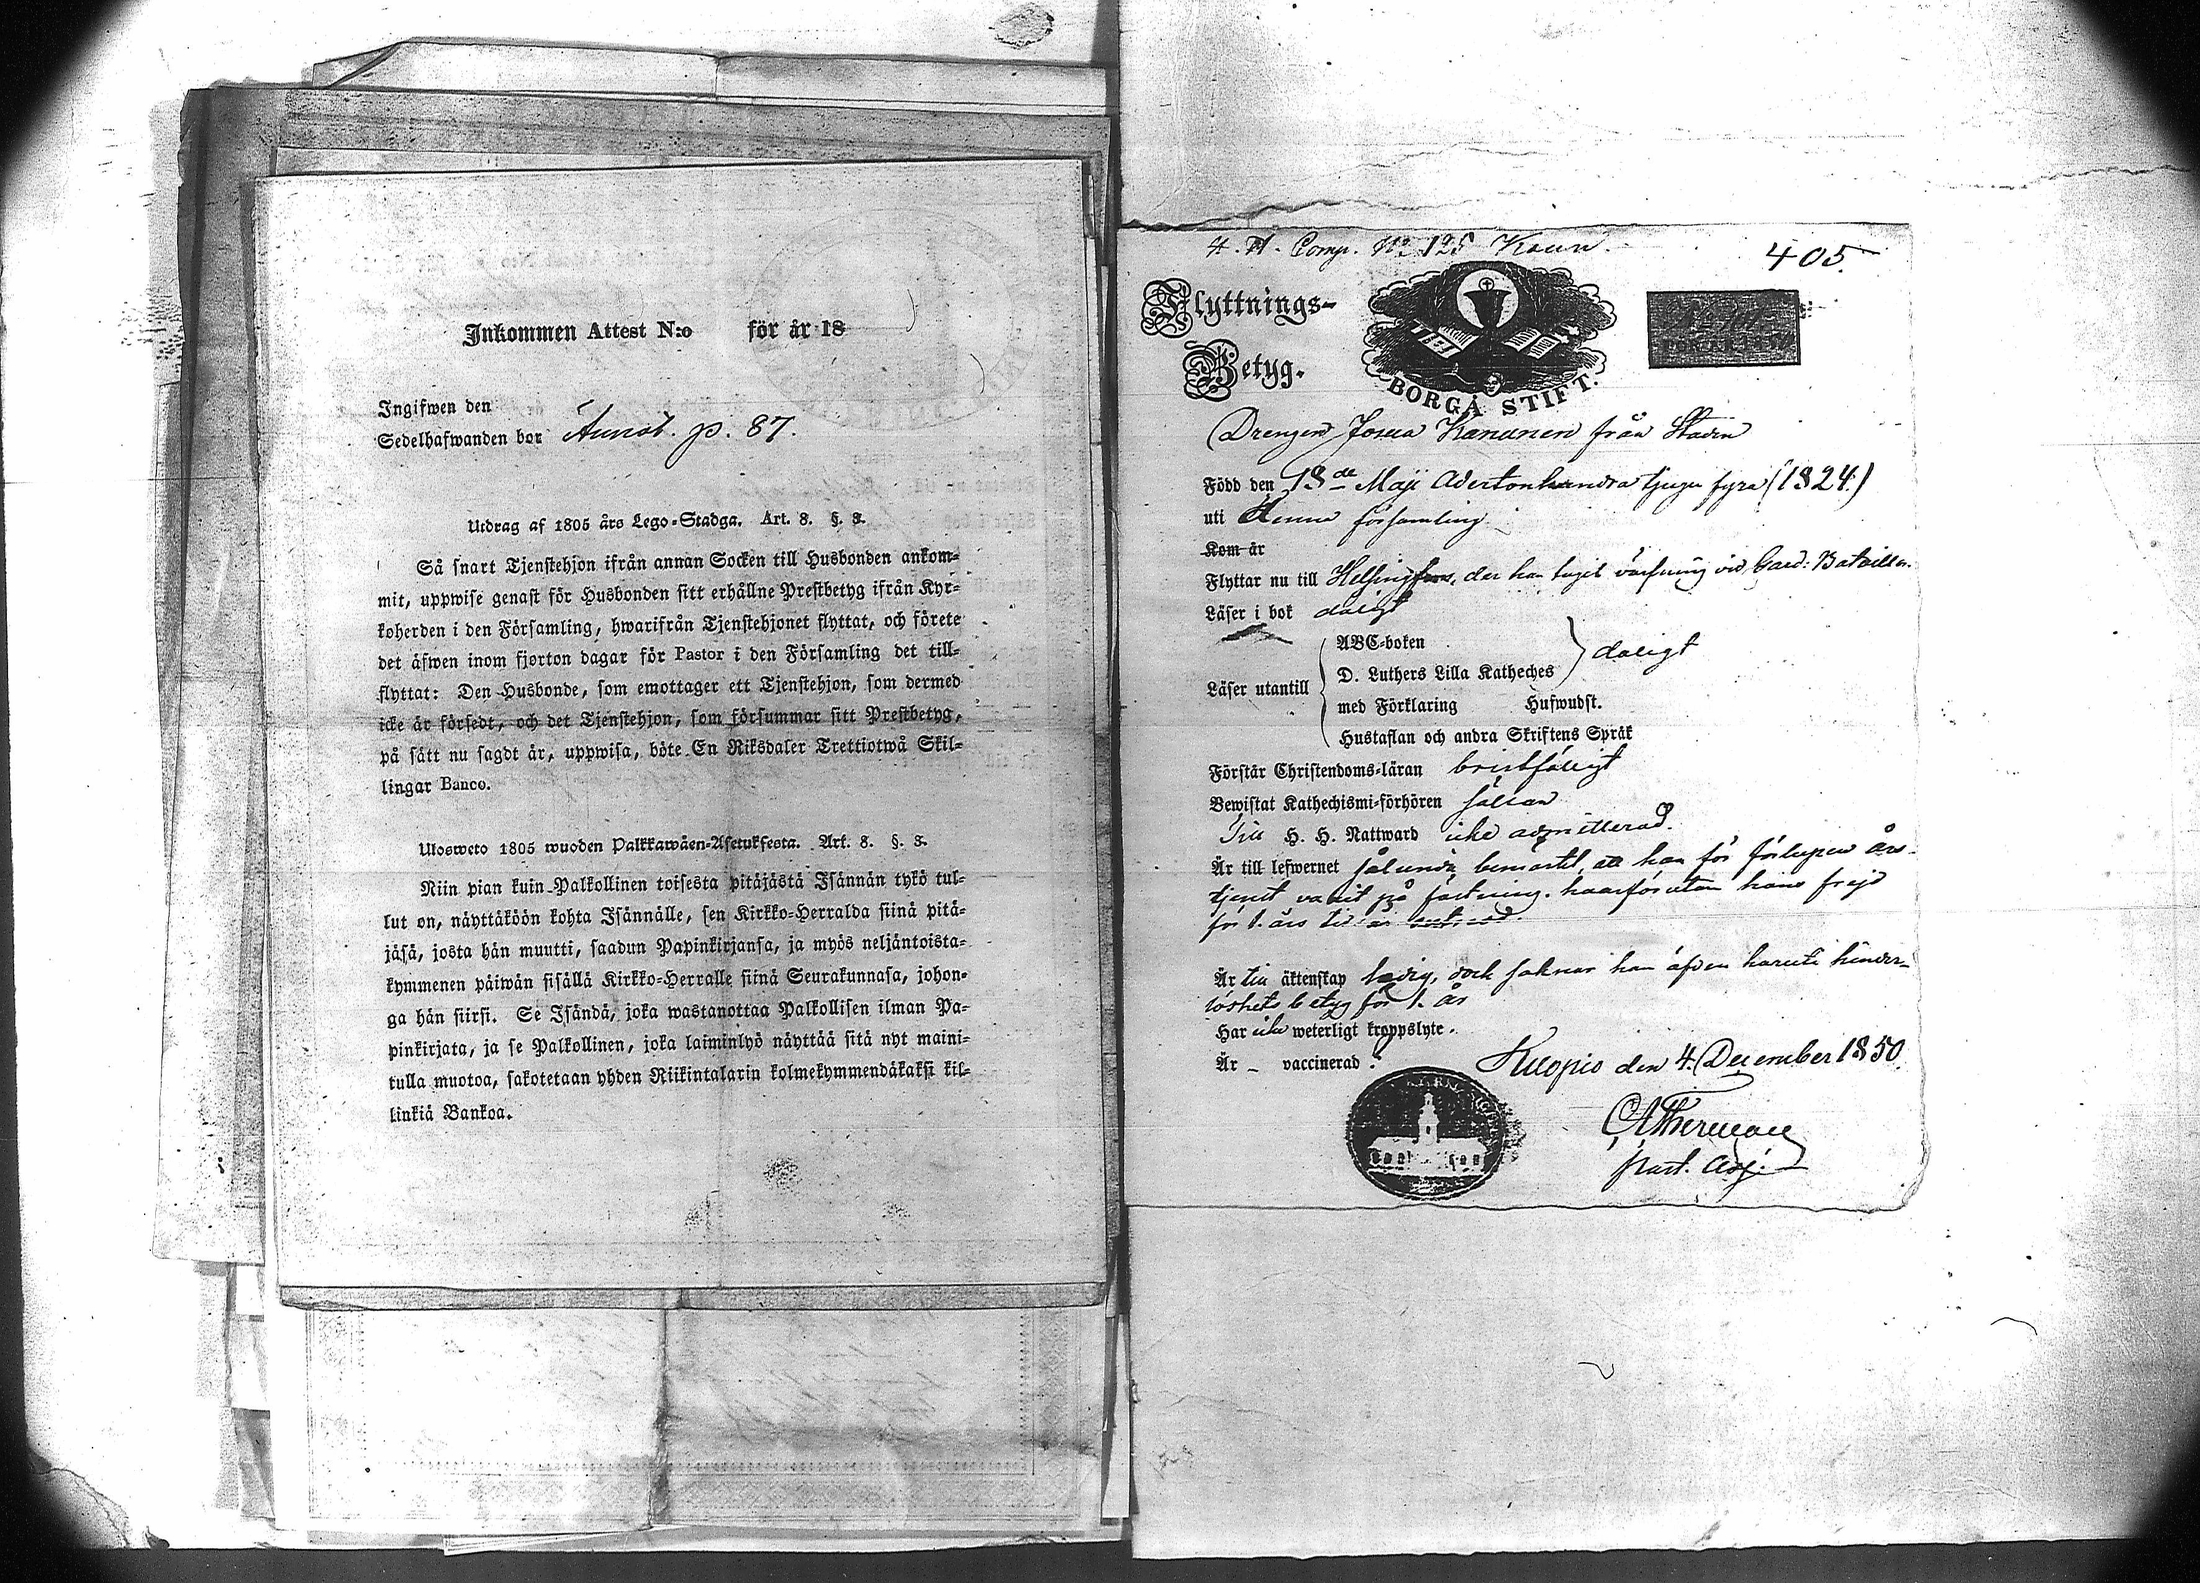 Inkommen Attest N:o för år 18
Ingifwen den
Sedelhafwanden bor Annot. p. 87.
Utdrag af 1805 års Lego-Stadga. Art. 8. §. 8.
Så snart Tjenstehjon ifrån annan Socken till Husbonden ankom-
mit, uppwise genast för Husbonden sitt erhållne Prestbetyg ifrån Kyr-
koherden i den Församling, hwarifrån Tjenstehjonet flyttat, och förete
det äfwen inom fjorton dagar för Pastor i den Församling det till-
flyttat: Den Husbonde, som emottager ett Tjenstehjon, som dermed
icke är försedt, och det Tjenstehjon, som försummar sitt Prestbetyg,
på sätt nu sagdt är, uppwisa, böte En Riksdaler Trettiotwå Skil-
lingar Banco.
Ulosweto 1805 wuoden Palkkawäen-Asetuksesta. Art. 8. §. 8.
Niin pian kuin Palkollinen toisesta pitäjästä Isännän tykö tul-
lut on, näyttäköön kohta Isännälle, sen Kirkko-Herralda siinä pitä-
jäsä, josta hän muutti, saadun Papinkirjansa, ja myös neljäntoista-
kymmenen päiwän sisällä Kirkko-Herralle siinä Seurakunnasa, johon-
ga hän siirsi. Se Isändä, joka wastanottaa Palkollisen ilman Pa-
pinkirjata, ja se Palkollinen, joka laiminlyö näyttää sitä nyt maini-
tulla muotoa, sakotetaan yhden Riikintalarin kolmekymmendäkaksi kil-
linkiä Bankoa.
4. Comp. No 125
405.
Flyttnings-
Betyg.
BORGÅ STIFT.
Drengen Josua Kananen från Staden
Född den 18de Maji Adertonhundra tjugu fyra (1824.)
uti denne församling
Kom år
Flyttar nu till Helsingfors, der han tagit värfning vid Gard: Bataillon.
Läser i bok daligt
Läser utantill
ABC-boken
D. Luthers Lilla Katheches daligt
med Förklaring Hufwudst.
Hustaflan och andra Skriftens Språk
Förstår Christendoms-läran bristfälligt
Bewistat Kathechismi-förhören sällan
Till H. H. Nattward icke admitterad.
Är till lefwernet sålunda bemärkt, att han för förlupen års-
tjenst varit på fästning. hvarförutan hans frejd
för 1. års tid är
Är till äktenskap ledig, dock saknar han äfven häruti hinder-
löshets betyg för 1. år
Har icke weterligt kroppslyte.
Är – vaccinerad.
Kuopio den 4. December 1850.
past. adj.